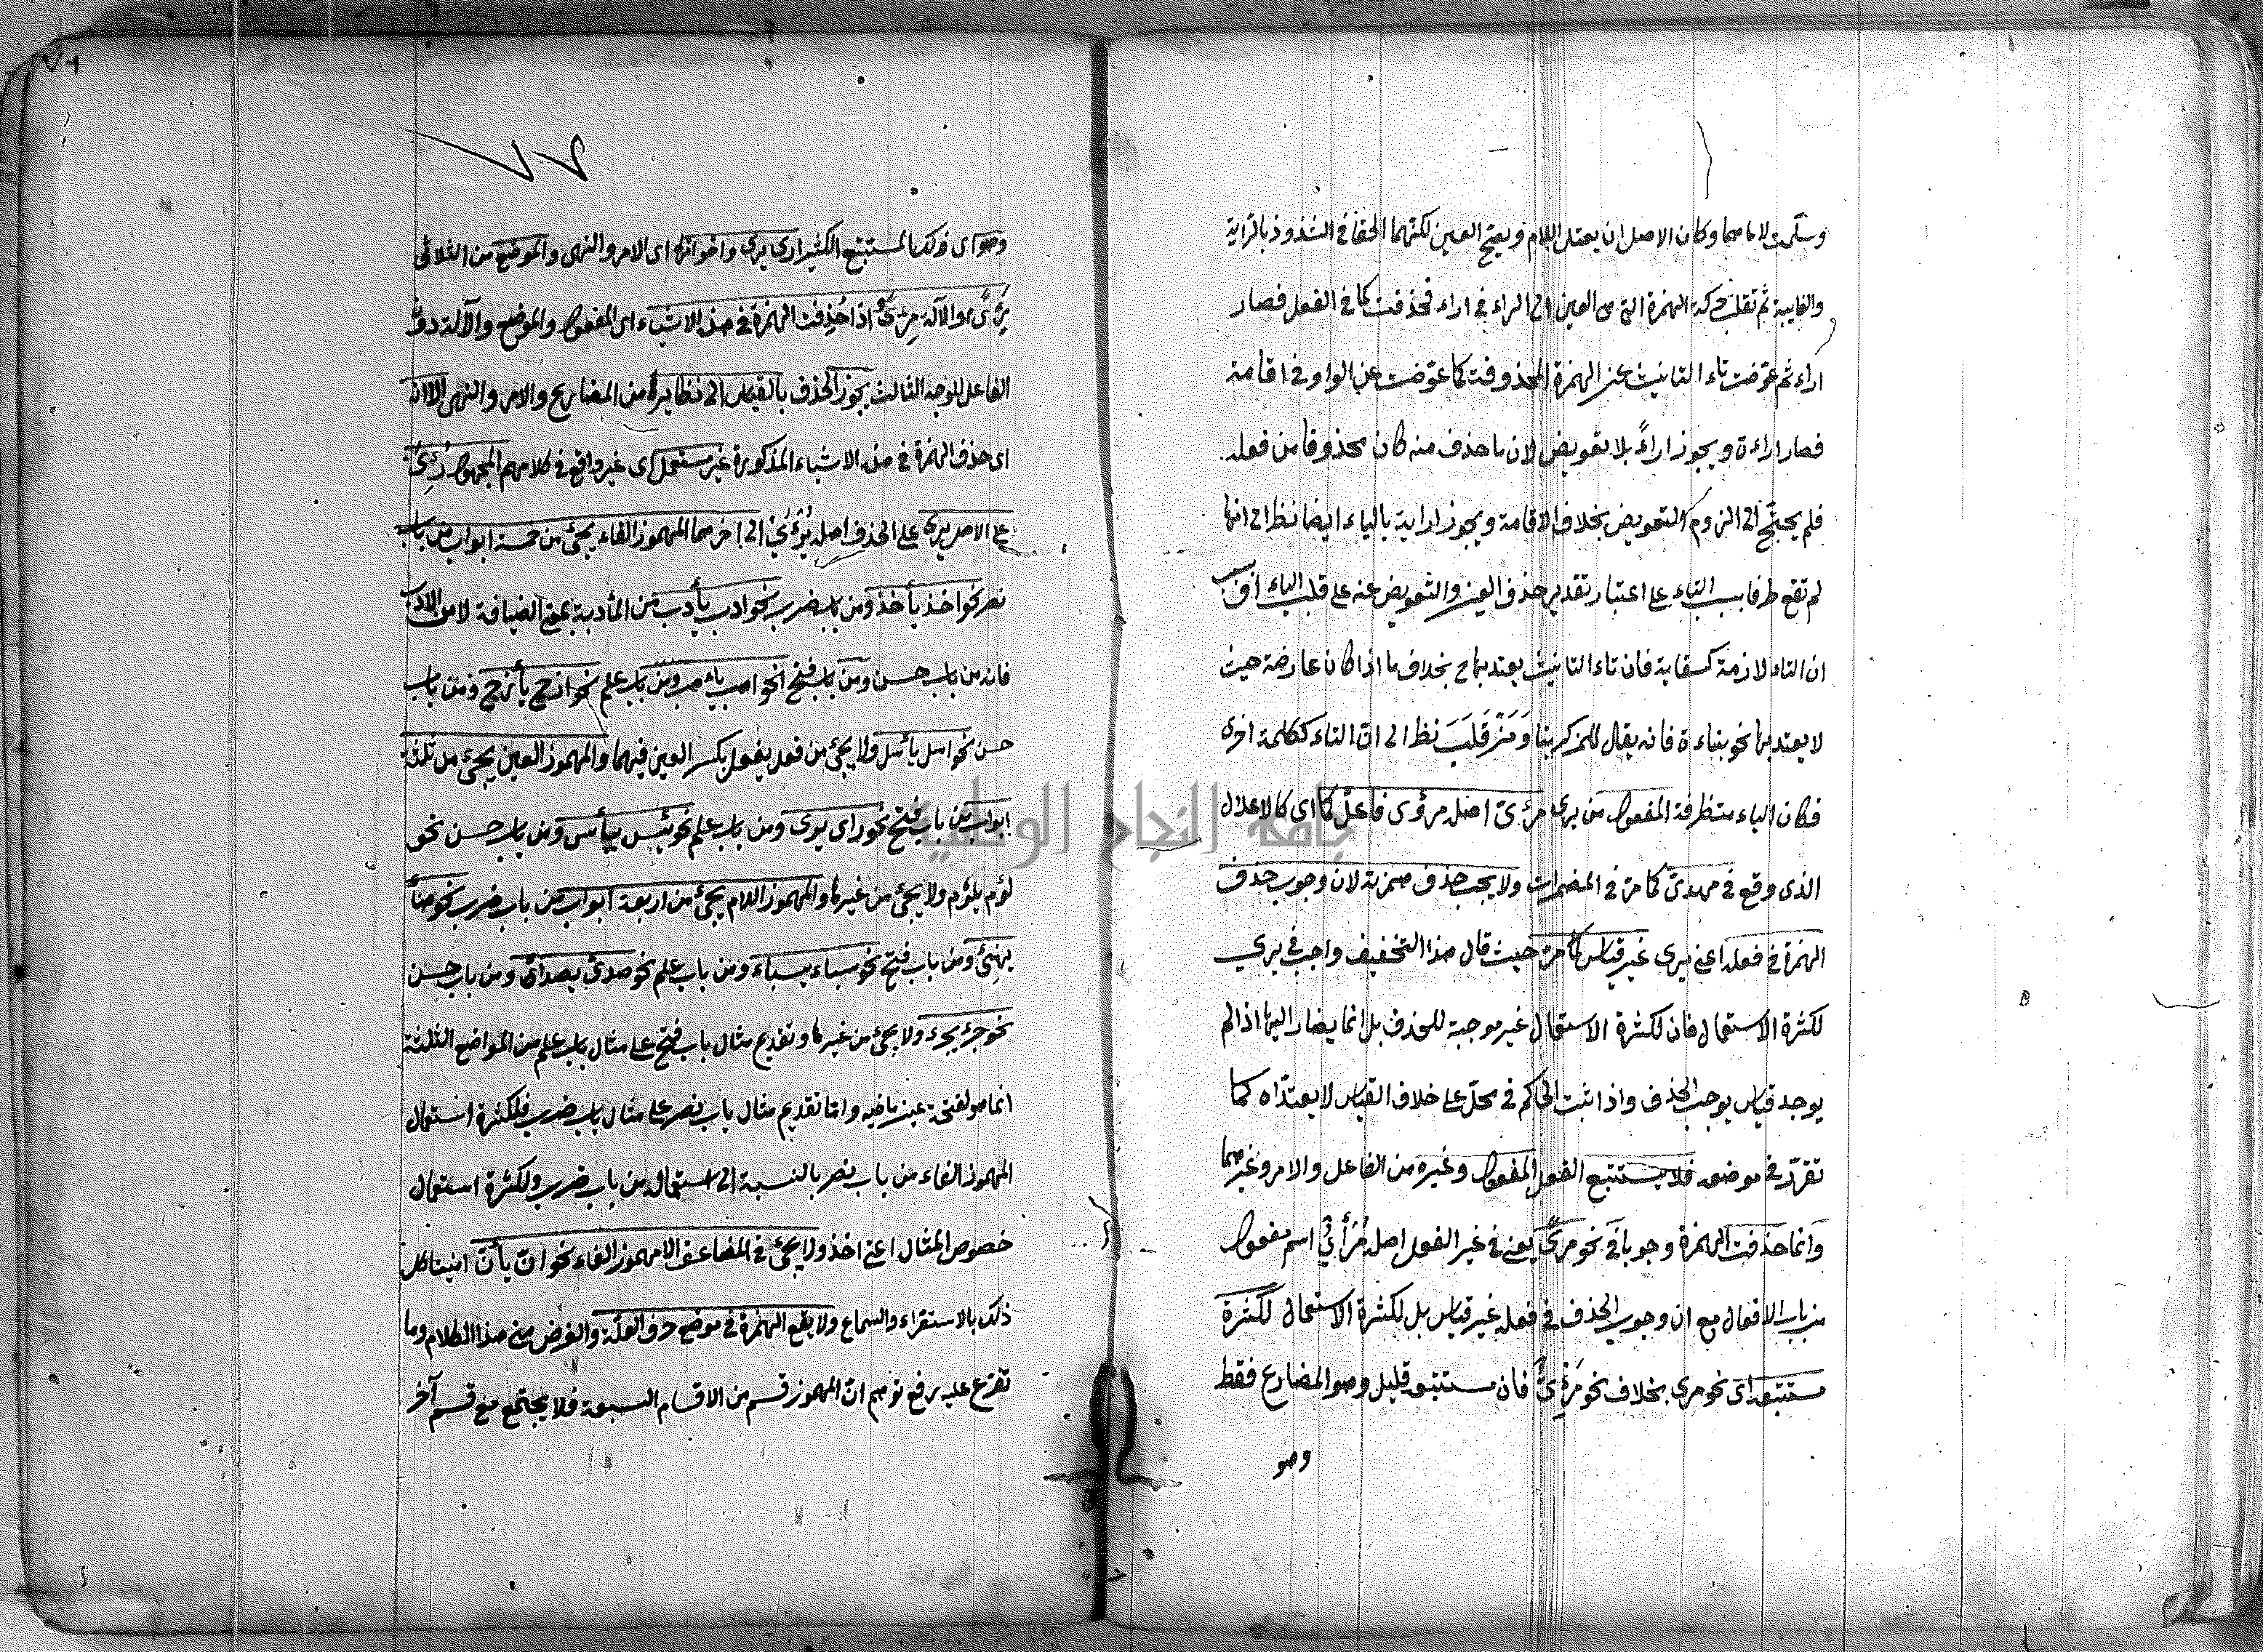 وسلمت لامهما وكان الاصل ان يعتل اللام ويصح العين لكنهما الحقا في الشذوذ بالراية
والغاية ثم تقلب حركة الهمزة التي هى العين الى الراء فى اراء فحذفت كما فى الفعل فصار
اراء ثم عوّضت تاء التانيث عن الهمزة المحذوفة كما عوّضت عن الواو فى اقامة
فصار اراءة ويجوز اراءً بلا تعويض لان ما حذف منه كان محذوفا من فعله
فلم يحتج الى لزوم التعويض بخلاف الاقامة ويجوز اراية بالياء ايضا نظرا الى انها
لم تقع طرفا بسبب التاء على اعتبار تقدير حذف العين والتعويض عنه على قلب الياء
ان التاء لازمة كسقاية فان تاء التانيث يعتد بها ح بخلاف ما اذا كان عارضة حيث
لا يعتد بها نحو بناءة فانه يقال للمذكر بنا وَمَنْ قَلَبَ نظر الى انّ التاء ككلمة اخرى
فكان الياء متطرفة المفعول من يرى مرئى اصله مرؤى فاعلّ كما اى كالاعلال
الذى وقع فى مهدىّ كما مرّ فى المضمرات ولا يجب حذف همزته لان وجوب حذف
الهمزة فى فعله اعنى يرى غير قياس كما مرّ حيث قال هذا التخفيف واجب فى يرى
لكثرة الاستعمال فان لكثرة الاستعمال غير موجبة للحذف بل انما يصار اليها اذا لم
يوجد قياس يوجب الحذف واذا ثبت الحكم فى محلّ على خلاف القياس لا يعتدّاه كما
تقرّر فى موضعه فلا يستتبع الفعل المفعول وغيره من الفاعل والامر وغيرهما
وانما حذفت الهمزة وجوبا فى نحو مرىً يعنى فى غير الفعل اصله مُرْأَىٌ اسم مفعول
من باب الافعال مع ان وجوب الحذف فى فعله غير قياس بل لكثرة الاستعمال لكثرة
مستتبعه اى نحو مرى بخلاف نحو مَرْئِىٌّ فان مستتبعه قليل وهو المضارع فقط
وهو
٧٦
٧٦
وهو اى فولك بالمستتبع الكثير ارى يرى واخواتها اى الامر والنهى والموضع من الثلاثى
مَرْئًى والآلة مِرْئًى اذا حُذفت الهمزة فى هذه الاشياء اى المفعول والموضع والآلة دون
الفاعل للوجه الثالث يجوز الحذف بالقياس الى نظايره من المضارع والامر والنهى الا انه
اى حذف الهمزة فى هذه الاشياء المذكورة غير مستعمل اى غير واقع فى كلامهم المجهول رُئِىَ
على الاصل يرى على الحذف اصله يُرْءَىُ الى اخرهما المهموز الفاء يجئ من خمسة ابواب من باب
نصر نحو اخذ يأخذ ومن باب ضرب نحو ادب يأدب من المأدبة بمعنى الضيافة لا من الادب
فانه من باب حسن ومن باب فتح نحو اهب ياهب ومن باب علم نحو ارج يأرج ومن باب
حسن نحو اسل يأسل ولا يجئ من فعل يفعل بكسر العين فيهما والمهموز العين يجئ من ثلثة
ابواب من باب فتح نحو راى يرى ومن باب علم نحو يئس ييأس ومن باب حسن نحو
لؤم يلؤم ولا يجئ من غيرها والمهموز اللام يجئ من اربعة ابواب من باب ضرب نحو هنأ
يهنئ ومن باب فتح نحو سباء يسباء ومن باب علم نحو صدئ يصدأ ومن باب حسن
نحو جرؤ يجرء ولا يجئ من غيرها وتقديم مثال باب فتح على مثال باب علم من المواضع الثلثة
انما هو لفتحة عين ماضيه واما تقديم مثال باب نصر على مثال باب ضرب فلكثرة استعمال
المهموز الفاء من باب نصر بالنسبة الى استعماله من باب ضرب ولكثرة استعمال
خصوص المثال اعنى اخذ ولا يجئ فى المضاعف الا مهموز الفاء نحو انّ يأنّ انينا كل
ذلك بالاستقراء والسماع ولا يقع الهمزة فى موضع حرف العلّة والغرض من هذا الكلام وما
تفرّع عليه رفع توهم انّ المهموز قسم من الاقسام السبعة فلا يجتمع مع قسم آخر
جامعة النجاح الوطنية